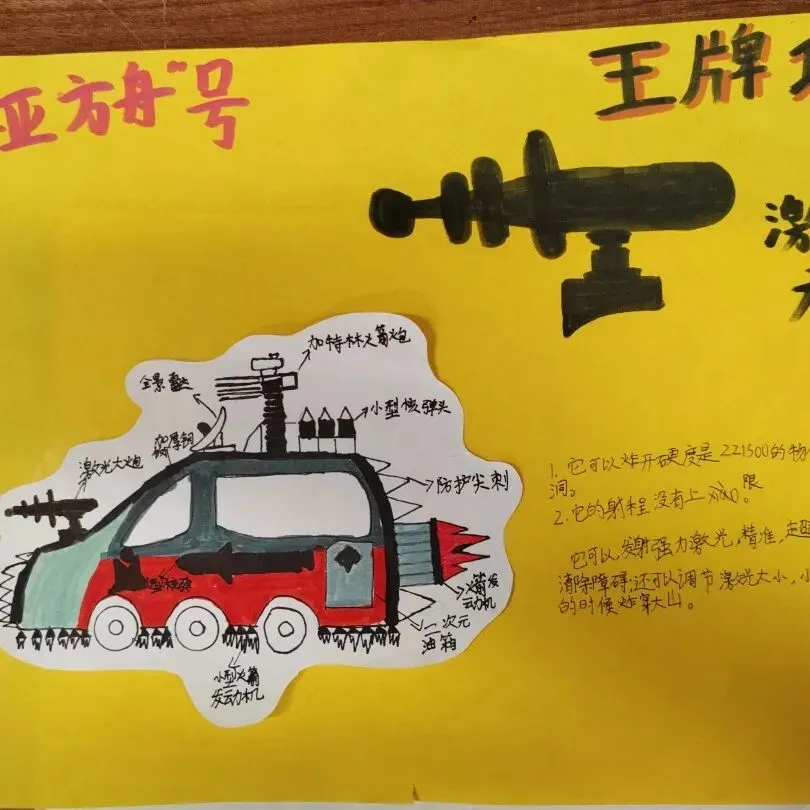 亚方舟"号
王牌
激
加特林火箭炮
全景雷达
小型核弹头
加厚钢
激光大炮
防护尖刺
火箭发
动机
二次元
油箱
小型火箭
发动机
1. 它可以炸开硬度是221500的物
洞。
2. 它的射程没有上 限。
它可以发射强力激光,精准,超
清除障碍,还可以调节激光大小,小
的时候炸穿大山。